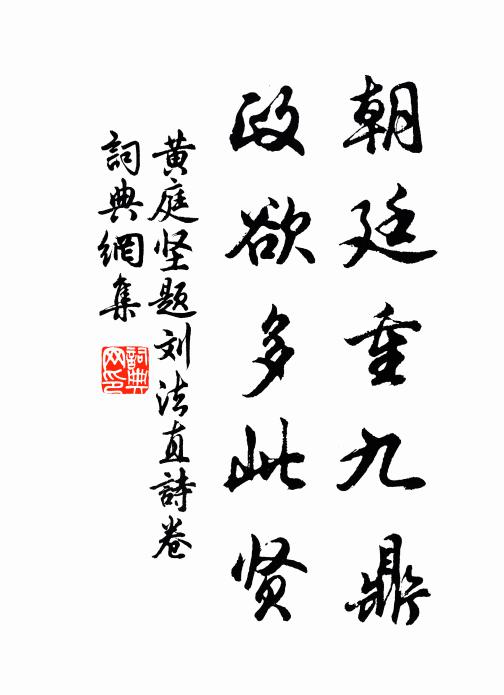 朝廷重九鼎
政欲多此贤
黄庭坚题刘法直詩卷
詞典網集
詞典网印